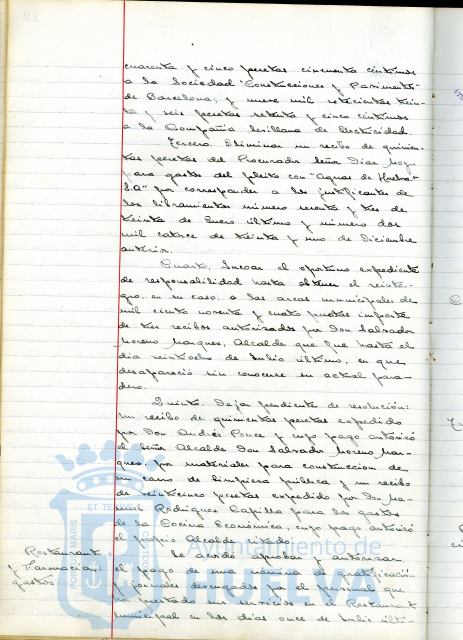 cuarenta y cinco pesetas cincuenta céntimos
a la Sociedad "Construcciones y Pavimentos"
de Barcelona; y nueve mil setecientas trein-
ta y seis pesetas setenta y cinco céntimos
a la Compañía Sevillana de Electricidad.
Tercero. Eliminar un recibo de quinien-
tas pesetas del Procurador Señor Díaz
para gastos del pleito con "Aguas de Huelva
S.A" por corresponder a los justificantes de
los libramientos número sesenta y tres de
treinta de Enero último y número dos
mil catorce de treinta y uno de Diciembre
anterior.
Cuarto, Incoar el oportuno expediente
de responsabilidad hasta obtener el reinte-
gro, en su caso, a las arcas municipales de
mil ciento noventa y cuatro pesetas importe
de tres recibos autorizados por Don Salvador
Moreno Marques, Alcalde que fue hasta el
día veintiocho de Julio último, en que
desapareció sin conocerse su actual para-
dero.
Quinto. Dejar pendiente de resolución:
un recibo de quinientas pesetas expedido
por Don Andrés Ponce y cuyo pago autorizó
el Señor Alcalde Don Salvador Moreno Mar-
ques, por materiales para construcción de
un carro de limpieza pública y un recibo
de veinticinco pesetas expedido por Don Ma-
nuel Rodríguez Capilla para los gastos
de la Cocina Económica, cuyo pago autorizó
el propio Alcalde citado.
Restaurant
y Farmacias:
gastos
Se acordó aprobar y autorizar
el pago de una nómina de gratificación
y jornales devengados por el personal que
ha prestado sus servicios en el Restaurant
municipal en los días once de Julio últi-
Ayuntamiento de
HUELVA